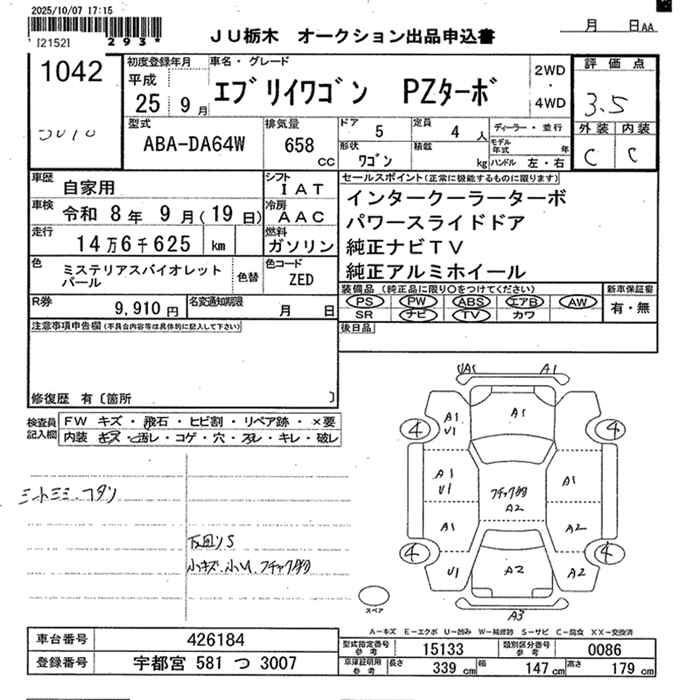 2025/10/07 17:15
293*
121521
JU栃木 オークション出品申込書
月 日AA
1042
初度登録年月
平成
25年9月
車名・グレード
エブリイワゴン PZターボ
2WD
・
4WD
評価点
3.5
外装 内装
C C
型式
ABA-DA64W
排気量
658
cc
ドア 5
定員 4人
形状 ワゴン
積載 kg
ディーラー・並行
モデル年式 年
ハンドル 左・右
車歴 自家用
シフト IAT
車検 令和8年9月(19日)
冷房 AAC
走行 14万6千625 km
燃料 ガソリン
色 ミステリアスバイオレットパール
色替
色コード ZED
R券 9,910円
名変通知期限 月 日
セールスポイント(正常に機能するものに限ります)
インタークーラーターボ
パワースライドドア
純正ナビTV
純正アルミホイール
装備品(純正品に限り○をつけてください)
PS PW ABS エアB AW
SR ナビ TV カワ
新車保証書
有・無
後日品
注意事項申告欄(不具合内容等は具体的に記入して下さい)
修復歴 有〔箇所 〕
検査員記入欄
FW キズ・飛石・ヒビ割・リペア跡・×要
内装 キズ・汚レ・コゲ・穴・スレ・キレ・破レ
小キズ、小U、フチャク物
UA1 A1
A1 U1
A1
4 4
A1 U1
フチャク物 A2
A1
A1
A2
4 4
U1
A2
A2
A3
スペア
A－キズ E－エクボ U－凹み W－補修跡 S－サビ C－腐食 XX－交換済
車台番号 426184
登録番号 宇都宮 581 つ 3007
型式指定番号 参考 15133
類別区分番号 参考 0086
車庫証明用 参考 長さ 339cm 幅 147cm 高さ 179cm